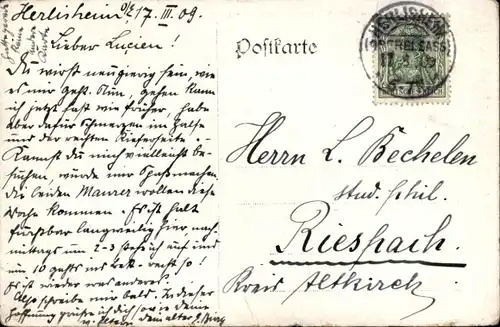 Herlisheim O/E 17. III. 09.
Lieber Lucien!
Du wirst neugierig sein, wie
es mir geht. Nun, gehen kann
ich jetzt fast wie früher, habe
aber dafür Schmerzen im Halse
und der rechten Kieferseite.
Kannst du mich vielleicht be-
suchen, würde mir Spaß machen,
die beiden Maurer wollen diese
Woche kommen. Es ist halt
furchtbar langweilig hier, nach-
mittags um 2-3 steh ich auf und
um 10 gehts ins Bett - recht so!
Es ist wieder was anderes.
Also schreibe mir bald. In dieser
Hoffnung grüße ich dich, sowie deine
Postkarte
HERLISHEIM
(OBERELSASS)
Herrn L. Bechelen
stud. phil.
Riespach.
Kreis Altkirch.